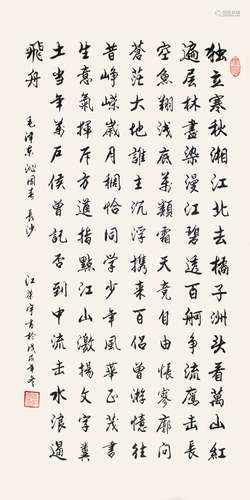 独立寒秋湘江北去橘子洲头看萬山红
遍层林盡染漫江碧透百舸争流鹰击长
空魚翔浅底萬類霜天竞自由怅寥廓问
蒼茫大地誰主沉浮携来百侣曾游憶往
昔峥嵘岁月稠恰同学少年風华正茂書
生意氣揮斥方遒指點江山激揚文字糞
土当年萬户侯曾記否到中流击水浪遏
飛舟
毛泽东沁园春长沙
江宇書於戊戌年冬